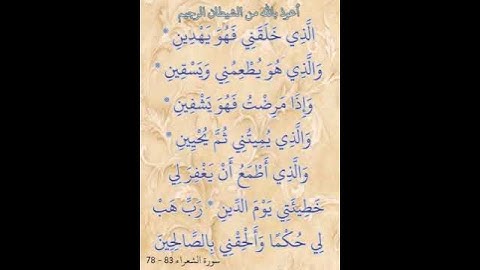 أعوذ بالله من الشيطان الرجيم
الَّذِي خَلَقَنِي فَهُوَ يَهْدِينِ *
وَالَّذِي هُوَ يُطْعِمُنِي وَيَسْقِينِ *
وَإِذَا مَرِضْتُ فَهُوَ يَشْفِينِ *
وَالَّذِي يُمِيتُنِي ثُمَّ يُحْيِينِ *
وَالَّذِي أَطْمَعُ أَنْ يَغْفِرَ لِي
خَطِيئَتِي يَوْمَ الدِّينِ * رَبِّ هَبْ
لِي حُكْمًا وَأَلْحِقْنِي بِالصَّالِحِينَ
سورة الشعراء 83 - 78